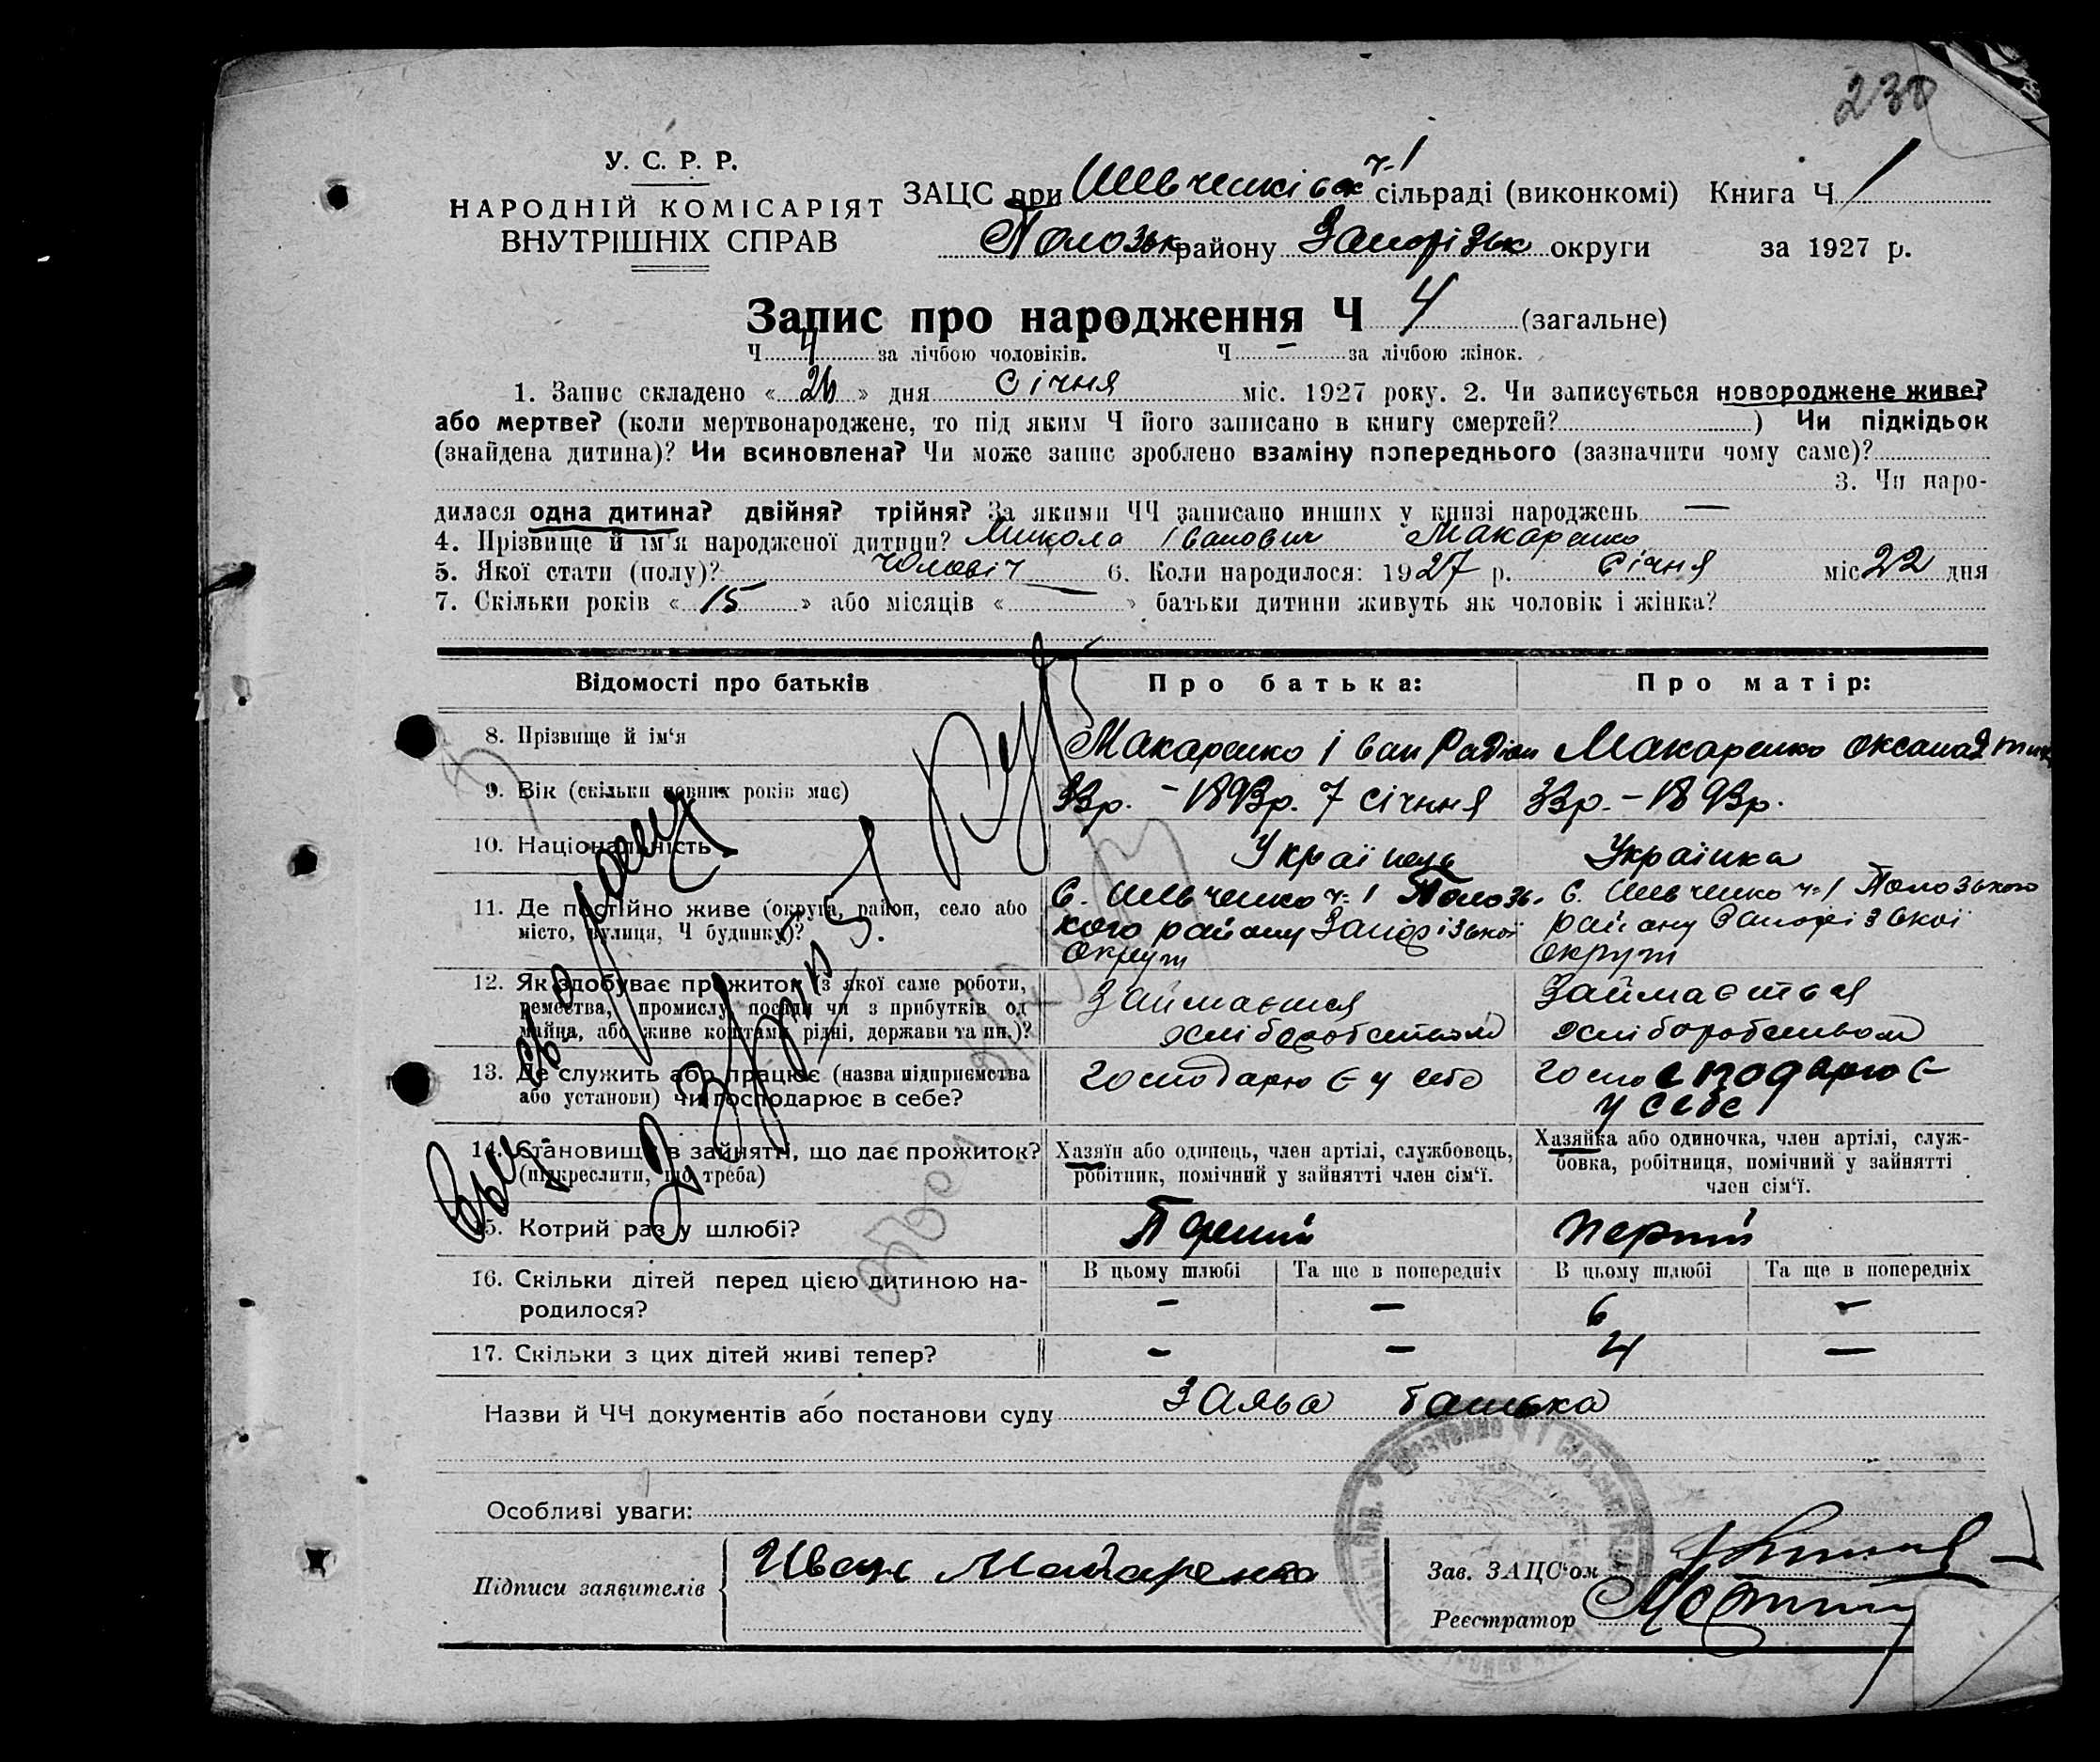 230
У. С. Р. Р.
НАРОДНІЙ КОМІСАРІЯТ
ВНУТРІШНІХ СПРАВ
ЗАЦС при Шевченківськ ч-1 сільраді (виконкомі) Книга Ч 1
Полозьк району Запорізьк округи за 1927 р.
Запис про народження Ч 4 (загальне)
Ч 4 за лічбою чоловіків. Ч — за лічбою жінок.
1. Запис складено « 26 » дня січня міс. 1927 року. 2. Чи записується новороджене живе?
або мертве? (коли мертвонароджене, то під яким Ч його записано в книгу смертей? ) Чи підкідьок
(знайдена дитина)? Чи всиновлена? Чи може запис зроблено взаміну попереднього (зазначити чому саме)?
3. Чи наро-
дилася одна дитина? двійня? трійня? За якими ЧЧ записано инших у книзі народжень —
4. Прізвище й ім'я народженої дитини? Микола Іванович Макаренко
5. Якої стати (полу)? Чоловіч 6. Коли народилося: 1927 р. січня міс 22 дня
7. Скільки років « 15 » або місяців « — » батьки дитини живуть як чоловік і жінка?
Відомості про батьків Про батька: Про матір:
8. Прізвище й ім'я Макаренко Іван Радіон Макаренко Оксана
9. Вік (скільки повних років має) 33р. – 1893р. 7 січння 33р. – 1893р.
10. Національність Українець Українка
11. Де постійно живе (округа, район, село або
місто, вулиця, Ч будинку)?
С. Шевченко ч-1 Полозь-
кого району Запорізької
округи
С. Шевченко ч-1 Полозького
району Запорізької
округи
12. Як здобуває прожиток (з якої саме роботи,
ремества, промислу посади чи з прибутків од
майна, або живе коштами рідні, держави та ин.)?
Займається
хліборобством
Займається
хліборобством
13. Де служить або працює (назва підприємства
або установи) чи господарює в себе?
господарює у себе
господарює
у себе
14. Становище в зайнятті, що дає прожиток?
(підкреслити, що треба)
Хазяїн або одинець, член артілі, службовець,
робітник, помічний у зайнятті член сім'ї.
Хазяйка або одиночка, член артілі, служ-
бовка, робітниця, помічний у зайнятті
член сім'ї.
15. Котрий раз у шлюбі? Перший перший
16. Скільки дітей перед цією дитиною на-
родилося?
В цьому шлюбі Та ще в попередніх В цьому шлюбі Та ще в попередніх
– – 6 –
17. Скільки з цих дітей живі тепер? – – 4 —
Назви й ЧЧ документів або постанови суду Заява батька
Особливі уваги:
Підписи заявителів Иван Макаренко
Зав. ЗАЦС'ом
Реєстратор